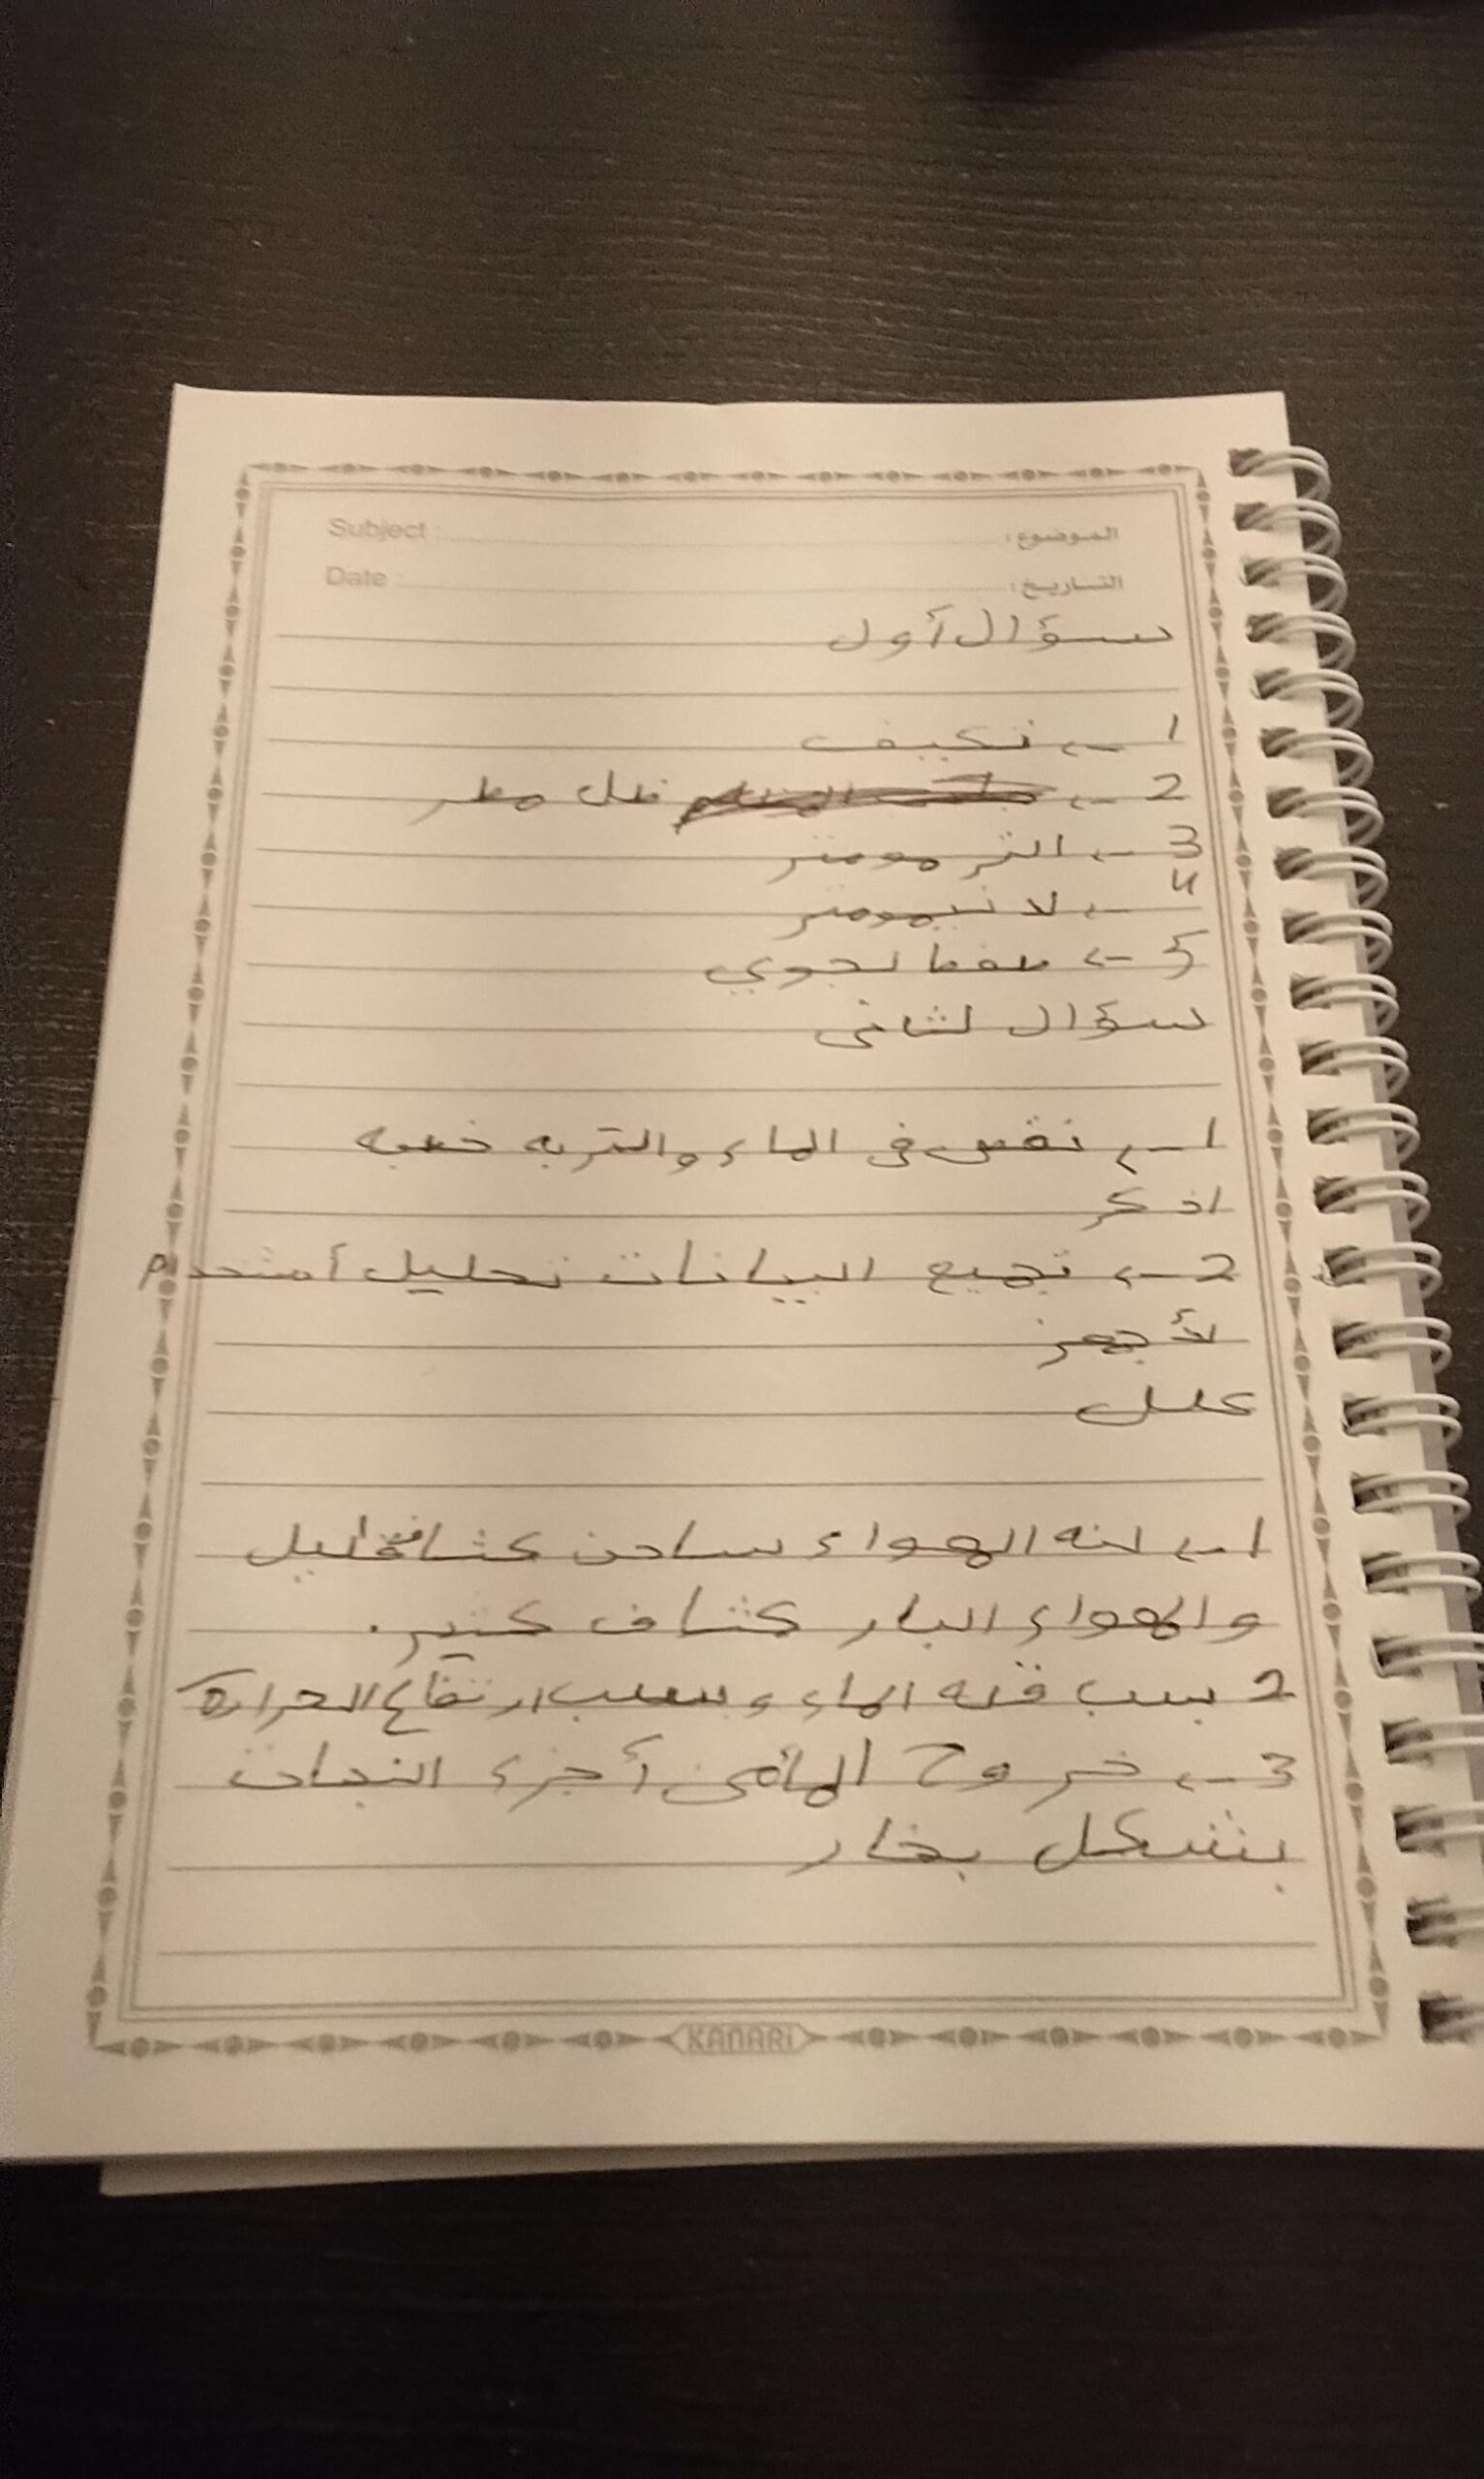 Subject : الموضوع:
Date : التاريخ:
سؤال أول
1 ← تكييف
2 ← ظل مطر
3 ← الترمومتر
4 ← لانيمومتر
5 ← لجوي
سؤال لثاني
1 ← نقص في الماء والتربه خصبه
اذكر
2 ← تجميع البيانات تحليل أستخدام
لأجهز
علل
1 ← لنه الهواء ساخن كثافة قليل
والهواء البار كثاف كثير.
2 بسب قله الماء وبسبب ارتفاع الحرارة
3 ← خروج أجزء النبات
بشكل بخار
KANARI